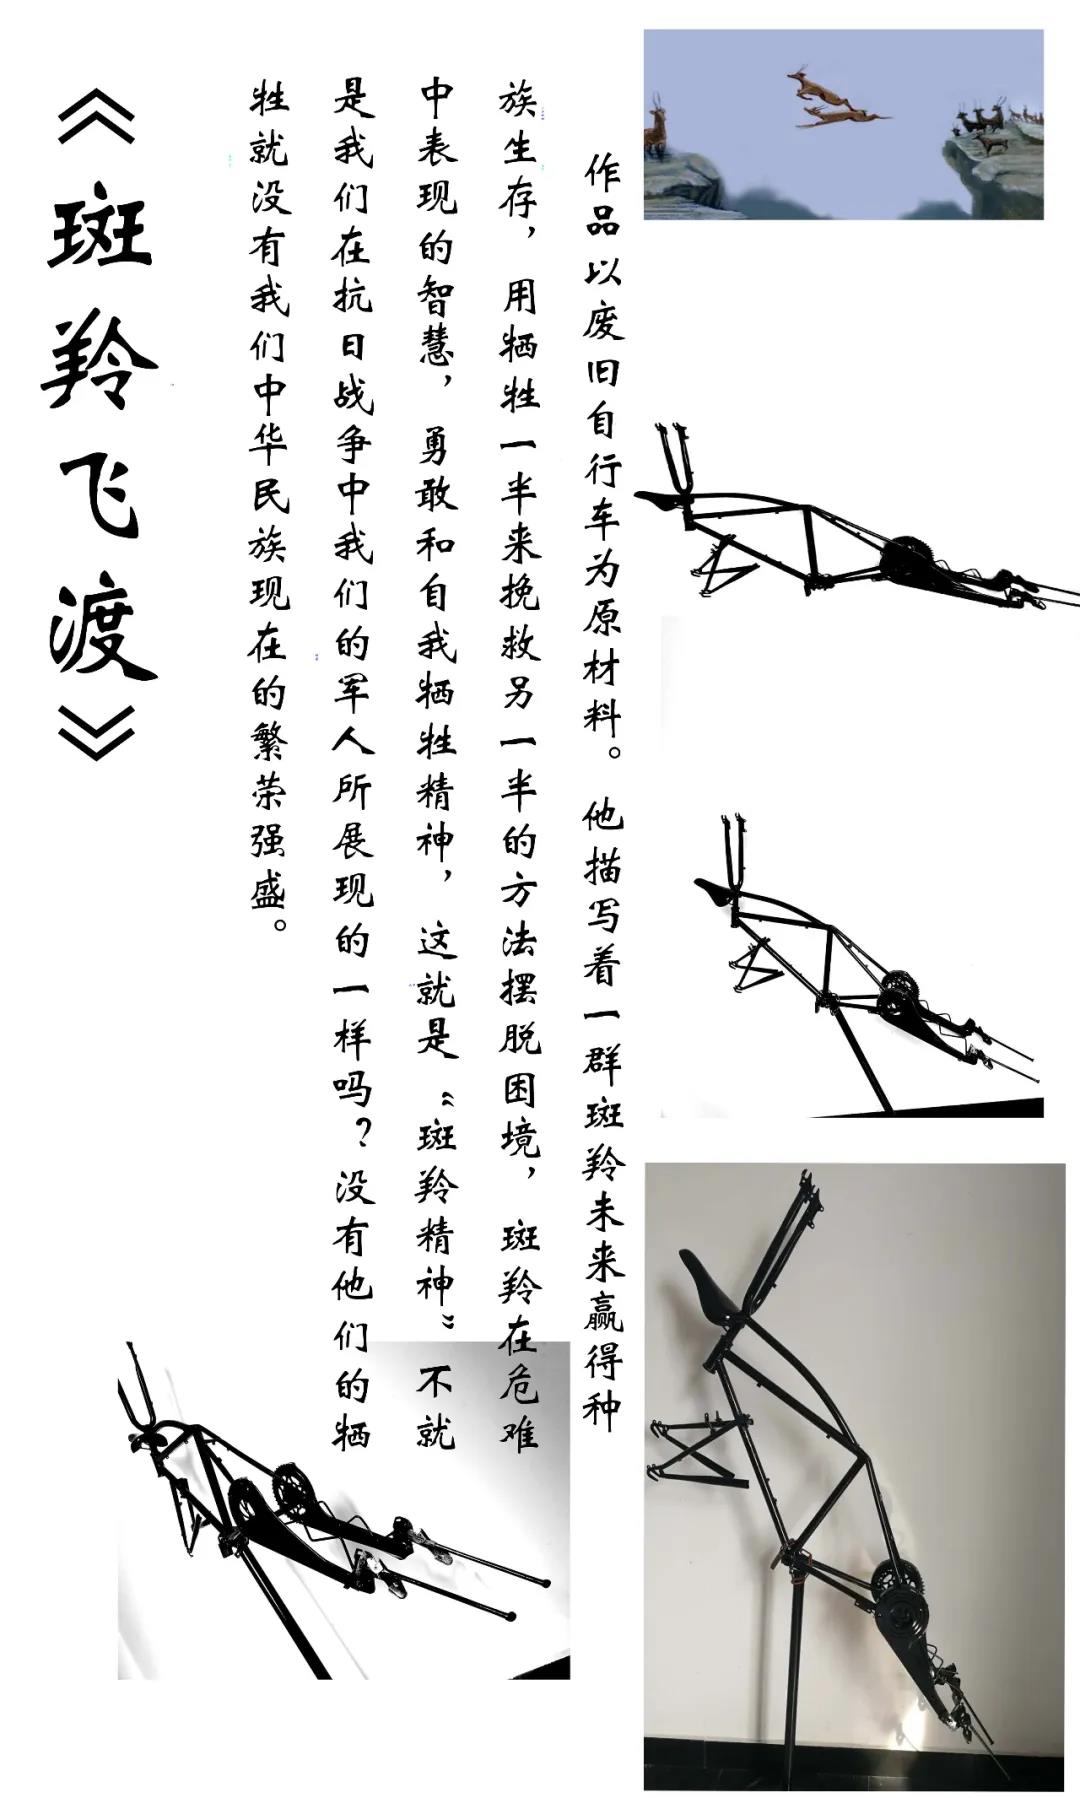 《斑羚飞渡》
作品以废旧自行车为原材料。他描写着一群斑羚未来赢得种
族生存，用牺牲一半来挽救另一半的方法摆脱困境，斑羚在危难
中表现的智慧，勇敢和自我牺牲精神，这就是“斑羚精神”不就
是我们在抗日战争中我们的军人所展现的一样吗？没有他们的牺
牲就没有我们中华民族现在的繁荣强盛。